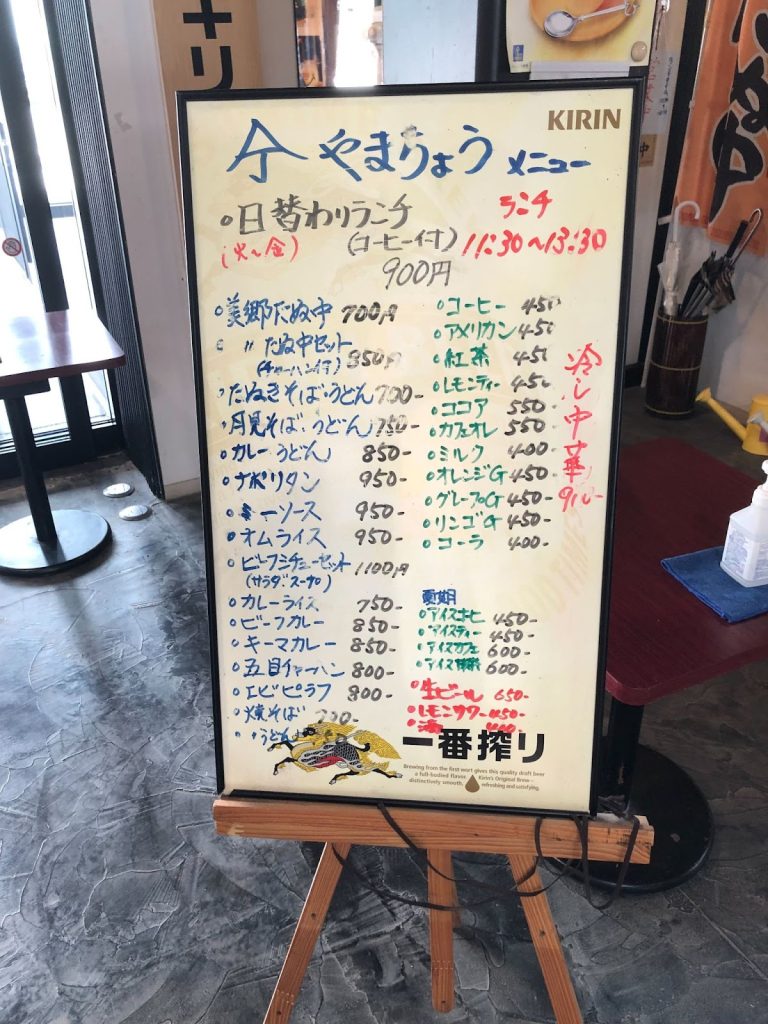 KIRIN
やまりょう メニュー
○日替わりランチ
(火〜金)
(コーヒー付)
900円
ランチ
11:30〜13:30
○美郷たぬ中 700円
○ 〃 たぬ中セット
(チャーハン付) 850円
○たぬきそば・うどん 700-
○月見そば・うどん 750-
○カレーうどん 850-
○ナポリタン 950-
○ミートソース 950-
○オムライス 950-
○ビーフシチューセット
(サラダ・スープ) 1100円
○カレーライス 750-
○ビーフカレー 850-
○キーマカレー 850-
○五目チャーハン 800-
○エビピラフ 800-
○焼そば
〃うどん
○コーヒー 450
○アメリカン 450
○紅茶 450
○レモンティー 450
○ココア 550-
○カフェオレ 550-
○ミルク 400-
○オレンジG 450
○グレープG 450-
○リンゴG 450-
○コーラ 400-
冷し中華
夏期
○アイスコーヒ 450-
○アイスティー 450-
○アイスカフェ 600-
○アイス 600-
○生ビール 650-
○レモンサワー 450-
一番搾り
Brewing from the first wort gives this quality draft beer
a full-bodied flavor. Kirin's Original Brew—
distinctively smooth, refreshing and satisfying.